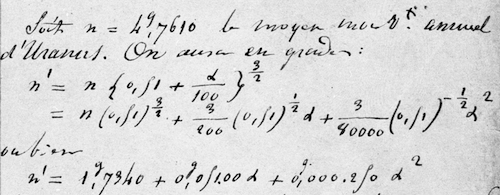 Soit n = 4ᵍ,7610 le moyen mouvᵗ. annuel
d'Uranus. On aura en grades:
n' = n {0,51 + α/100}^{3/2}
= n (0,51)^{3/2} + 3/200 (0,51)^{1/2} α + 3/80000 (0,51)^{-1/2} α²
ou bien
n' = 1ᵍ,7340 + 0ᵍ,05100 α + 0ᵍ,000.250 α²